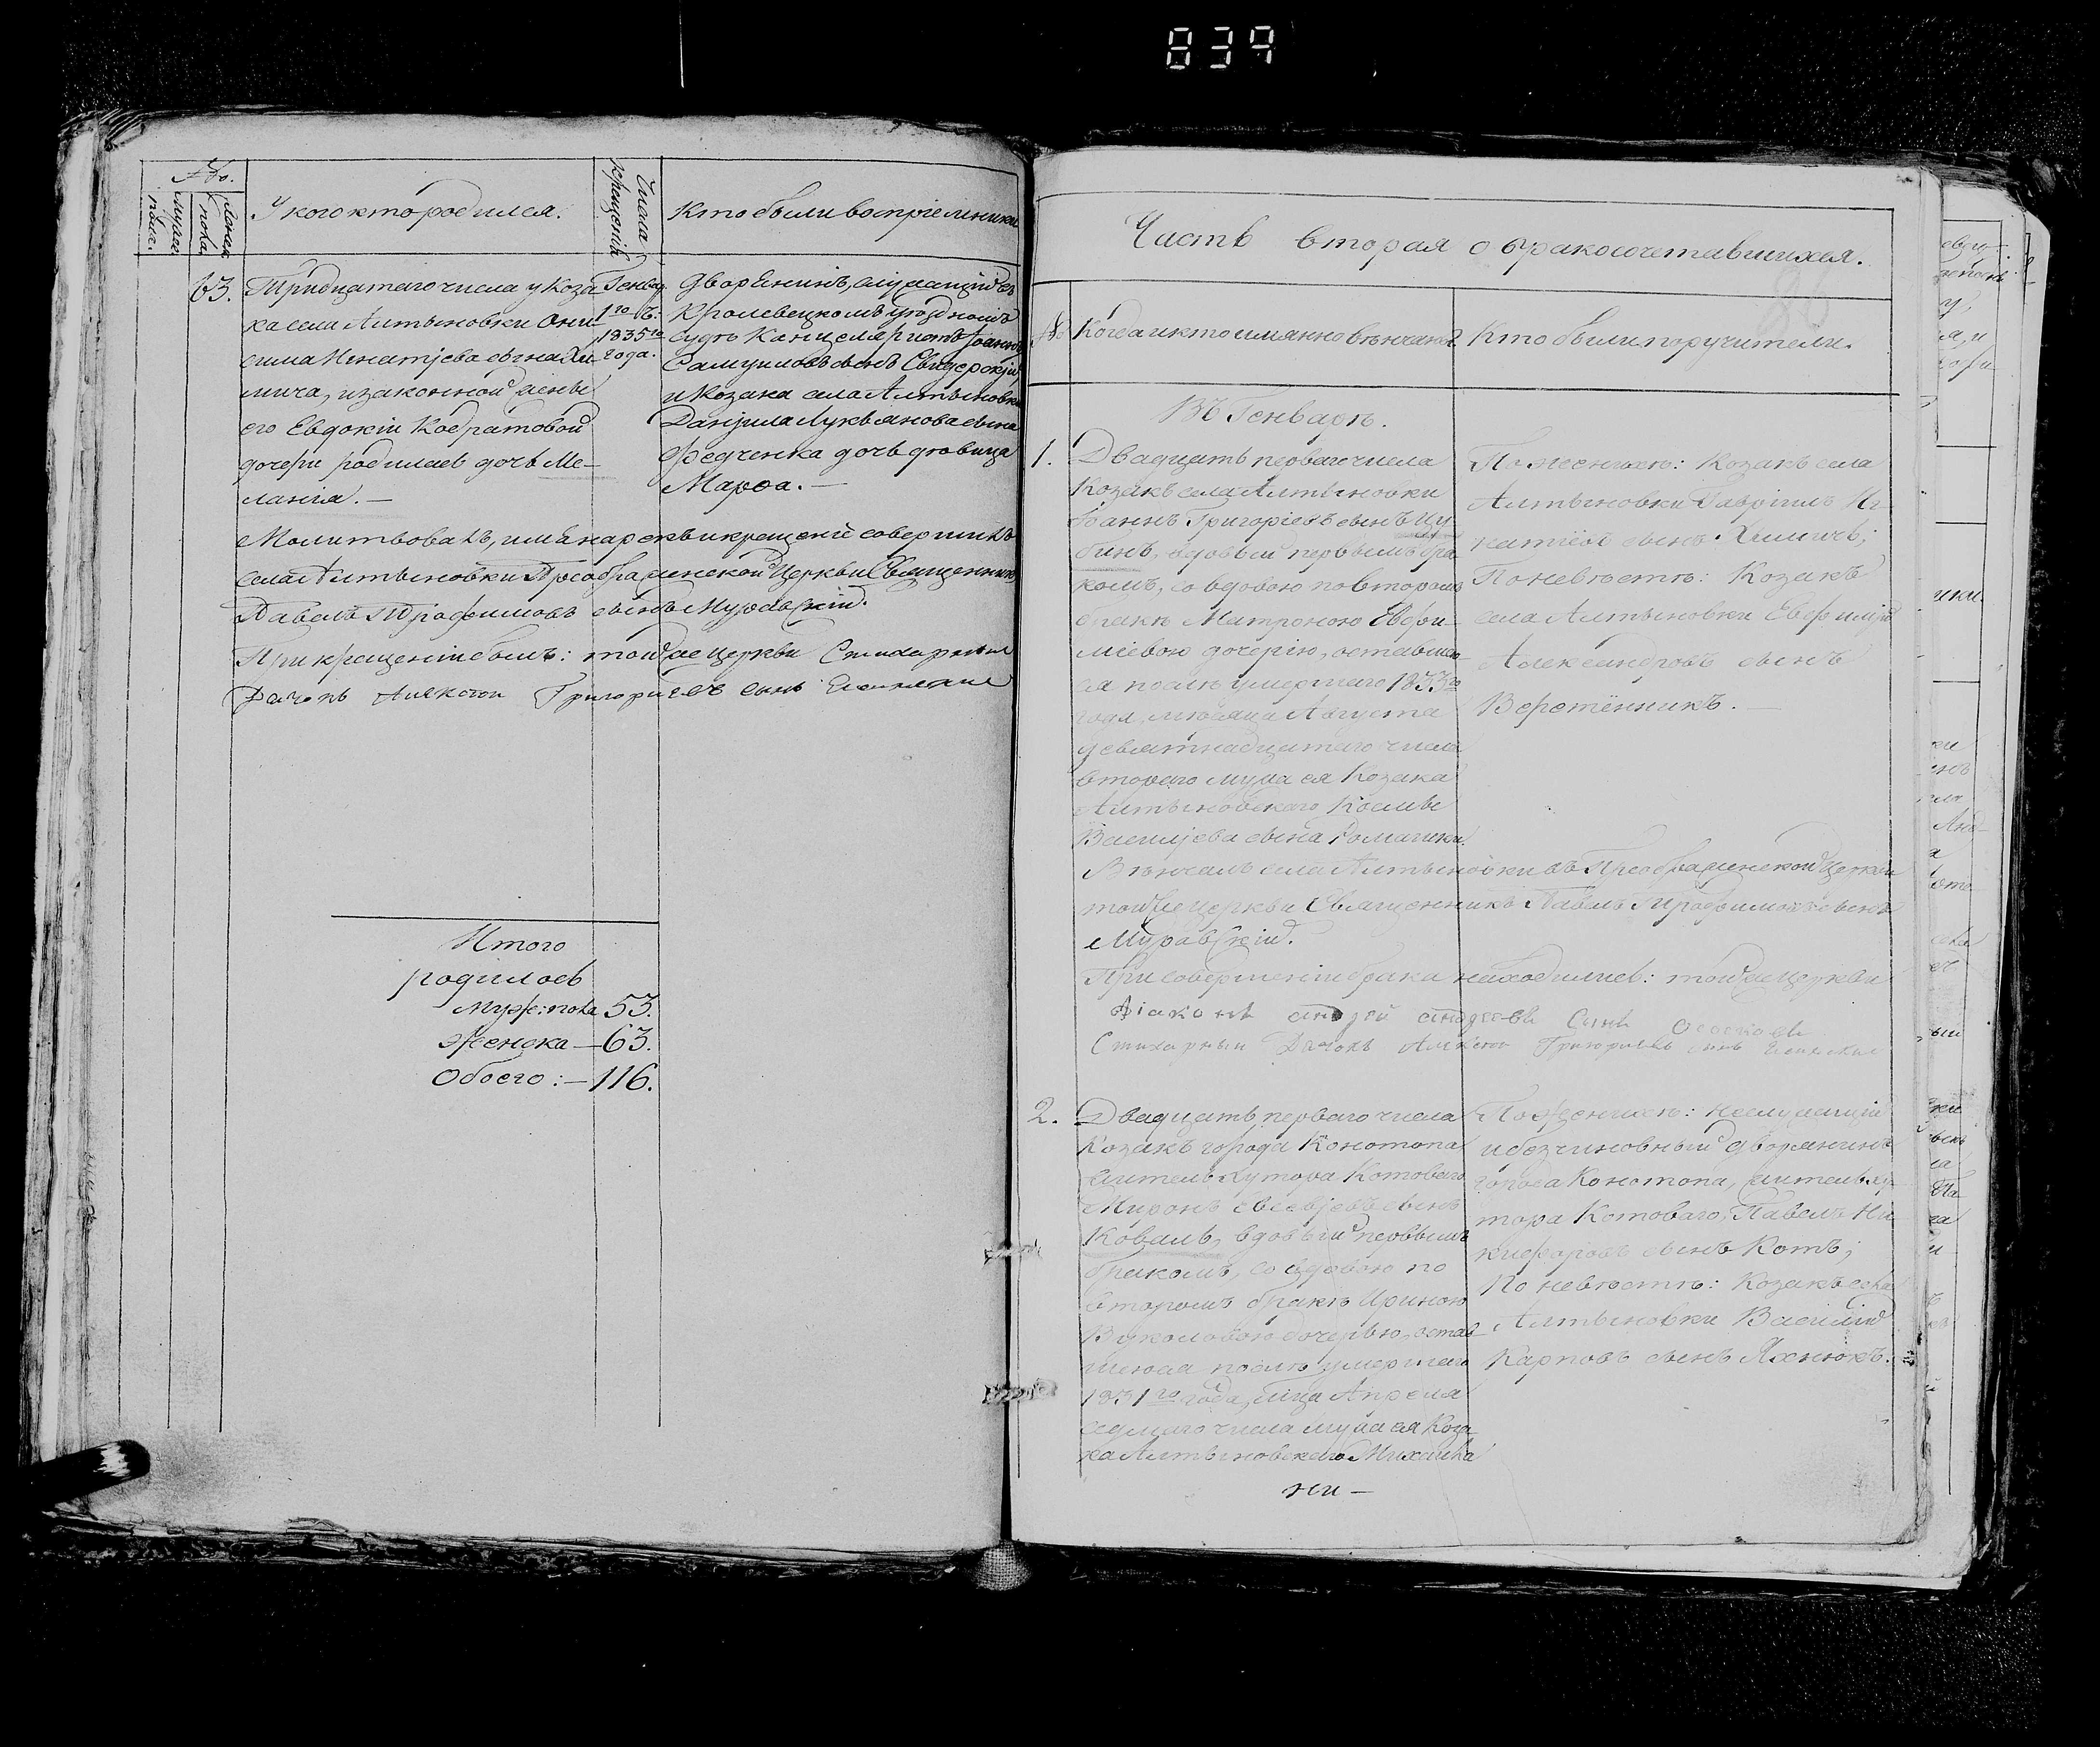 839
№.
мужес. пола.
женск. пола
У кого кто родился.
Числа крещенія
Кто были воспріемники
63.
Тридцатаго числа у Коза-
ка села Алтыновки Они-
сима Игнатіева сына Хи-
мича, и законной жены
его Евдокіи Кодратовой
дочери родилась дочь Ме-
ланія. —
Генвар.
1го ч:
1835го
года.
Дворянинъ, служащій въ
Кролевецкомъ уѣздномъ
судѣ Канцеляристъ Іоаннъ
Самуиловъ сынъ Свидерскій
и Козака села Алтыновки
Даніила Лукьянова сына
Федченка дочь дѣвица
Марѳа. —
Молитвовалъ, имя нарекъ и крещеніе совершилъ
села Алтыновки Преображенской Церкви Священникъ
Павелъ Трофимовъ сынъ Муравскій.
При крещеніи былъ: той же церкви Стихарный
Дячокъ Алексѣй Григоріевъ сынъ
Итого
родилось
Муж: пола 53.
Женска — 63.
Обоего: — 116.
Часть вторая о бракосочетавшихся.
№
Когда и кто имянно вѣнчаны
Кто были поручители.
Въ Генварѣ.
1.
Двадцать перваго числа
Козакъ села Алтыновки
Іоаннъ Григоріевъ сынъ Цу-
бинъ, вдовый первымъ бра-
комъ, со вдовою по второмъ
бракѣ Матроною Евфи-
міевою дочерію, оставшею-
ся послѣ умершаго 1833го
года, мѣсяца Августа
девятнадцатаго числа
втораго мужа ея Козака
Алтыновскаго Космы
Василіева сына Ромашки.
По женихѣ: Козакъ села
Алтыновки Гавріилъ Иг-
натіевъ сынъ Химичъ;
По невѣстѣ: Козакъ
села Алтыновки Евфимій
Александровъ сынъ
Веретенникъ. —
Вѣнчалъ села Алтыновки въ Преображенской Церкви
той же Церкви Священникъ Павелъ Трофимовъ сынъ
Муравскій.
При совершеніи брака находились: той же Церкви
Діаконъ андрей андреевъ Сынъ
Стихарный Дячокъ Алексѣй Григоріевъ сынъ
2.
Двадцать перваго числа
Козакъ города Конотопа
житель хутора Котоваго
Миронъ Евсевіевъ сынъ
Коваль, вдовый первымъ
бракомъ, со вдовою по
второмъ бракѣ Ириною
Вуколовою дочерью, остав-
шеюся послѣ умершаго
1831го года, мца Апреля
седмаго числа мужа ея Коза-
ка Алтыновскаго Михаила
По женихѣ: неслужащій
и безчиновный дворянинъ
города Конотопа, житель ху-
тора Котоваго, Павелъ Ни-
кифоровъ сынъ Котъ;
По невѣстѣ: Козакъ села
Алтыновки Василій
Карповъ сынъ Яхнюкъ.